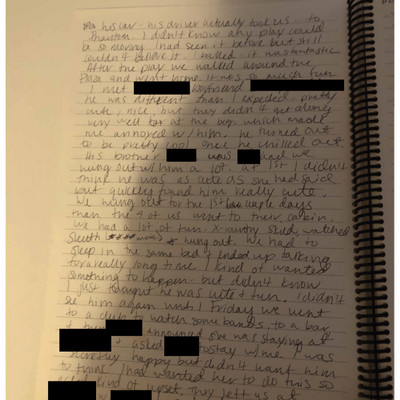 his car - his driver actually took us - to
Phantom. I didn't know any play could
be so moving. I had seen it before but still
couldn't believe it. I loved it it was fantastic.
After the play we walked around the
Plaza and went home. It was so much fun
I met boyfriend
he was different than I expected. pretty
cute, nice, but they didn't get along
very well for at the beg. which made
me annoyed w/ him. he turned out
to be pretty cool once he chilled out.
His brother was and we
hung out w/ him a lot. at 1st I didn't
think he was as cute as she had said
but quickly found him really cute.
We hung out for the 1st couple days
than the 4 of us went to their cabin.
We had a lot of fun. x-cuntry skied, watched
Sleuth hung out. We had to
sleep in the same bed & ended up talking
for a really long time. I kind of wanted
something to happen but didn't know
I just thought he was cute & fun. I didn't
see him again until Friday we went
to a club to watch some bands. to a bar
& then announced she was staying at
& asked to stay w/ me. I was
secretly happy but didn't want him
to think I had wanted her to do this so
acted kind of upset. They left us at